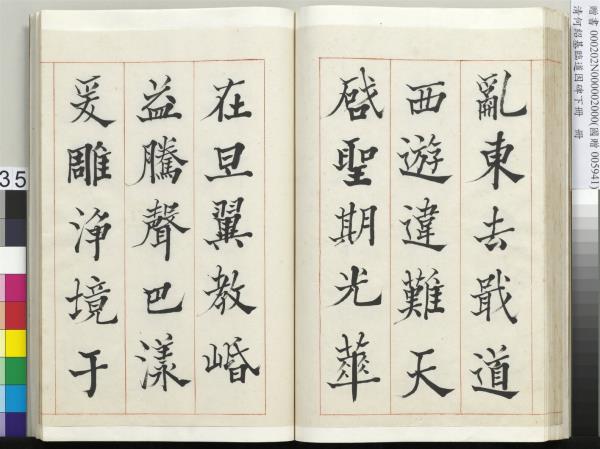 亂東去戢道
西遊違難天
啓聖期光華
在旦翼教㟭
益騰聲巴漾
爰雕淨境于
贈書 000202N000002000(國贈 005941)
清何紹基臨道因碑下冊 冊
35